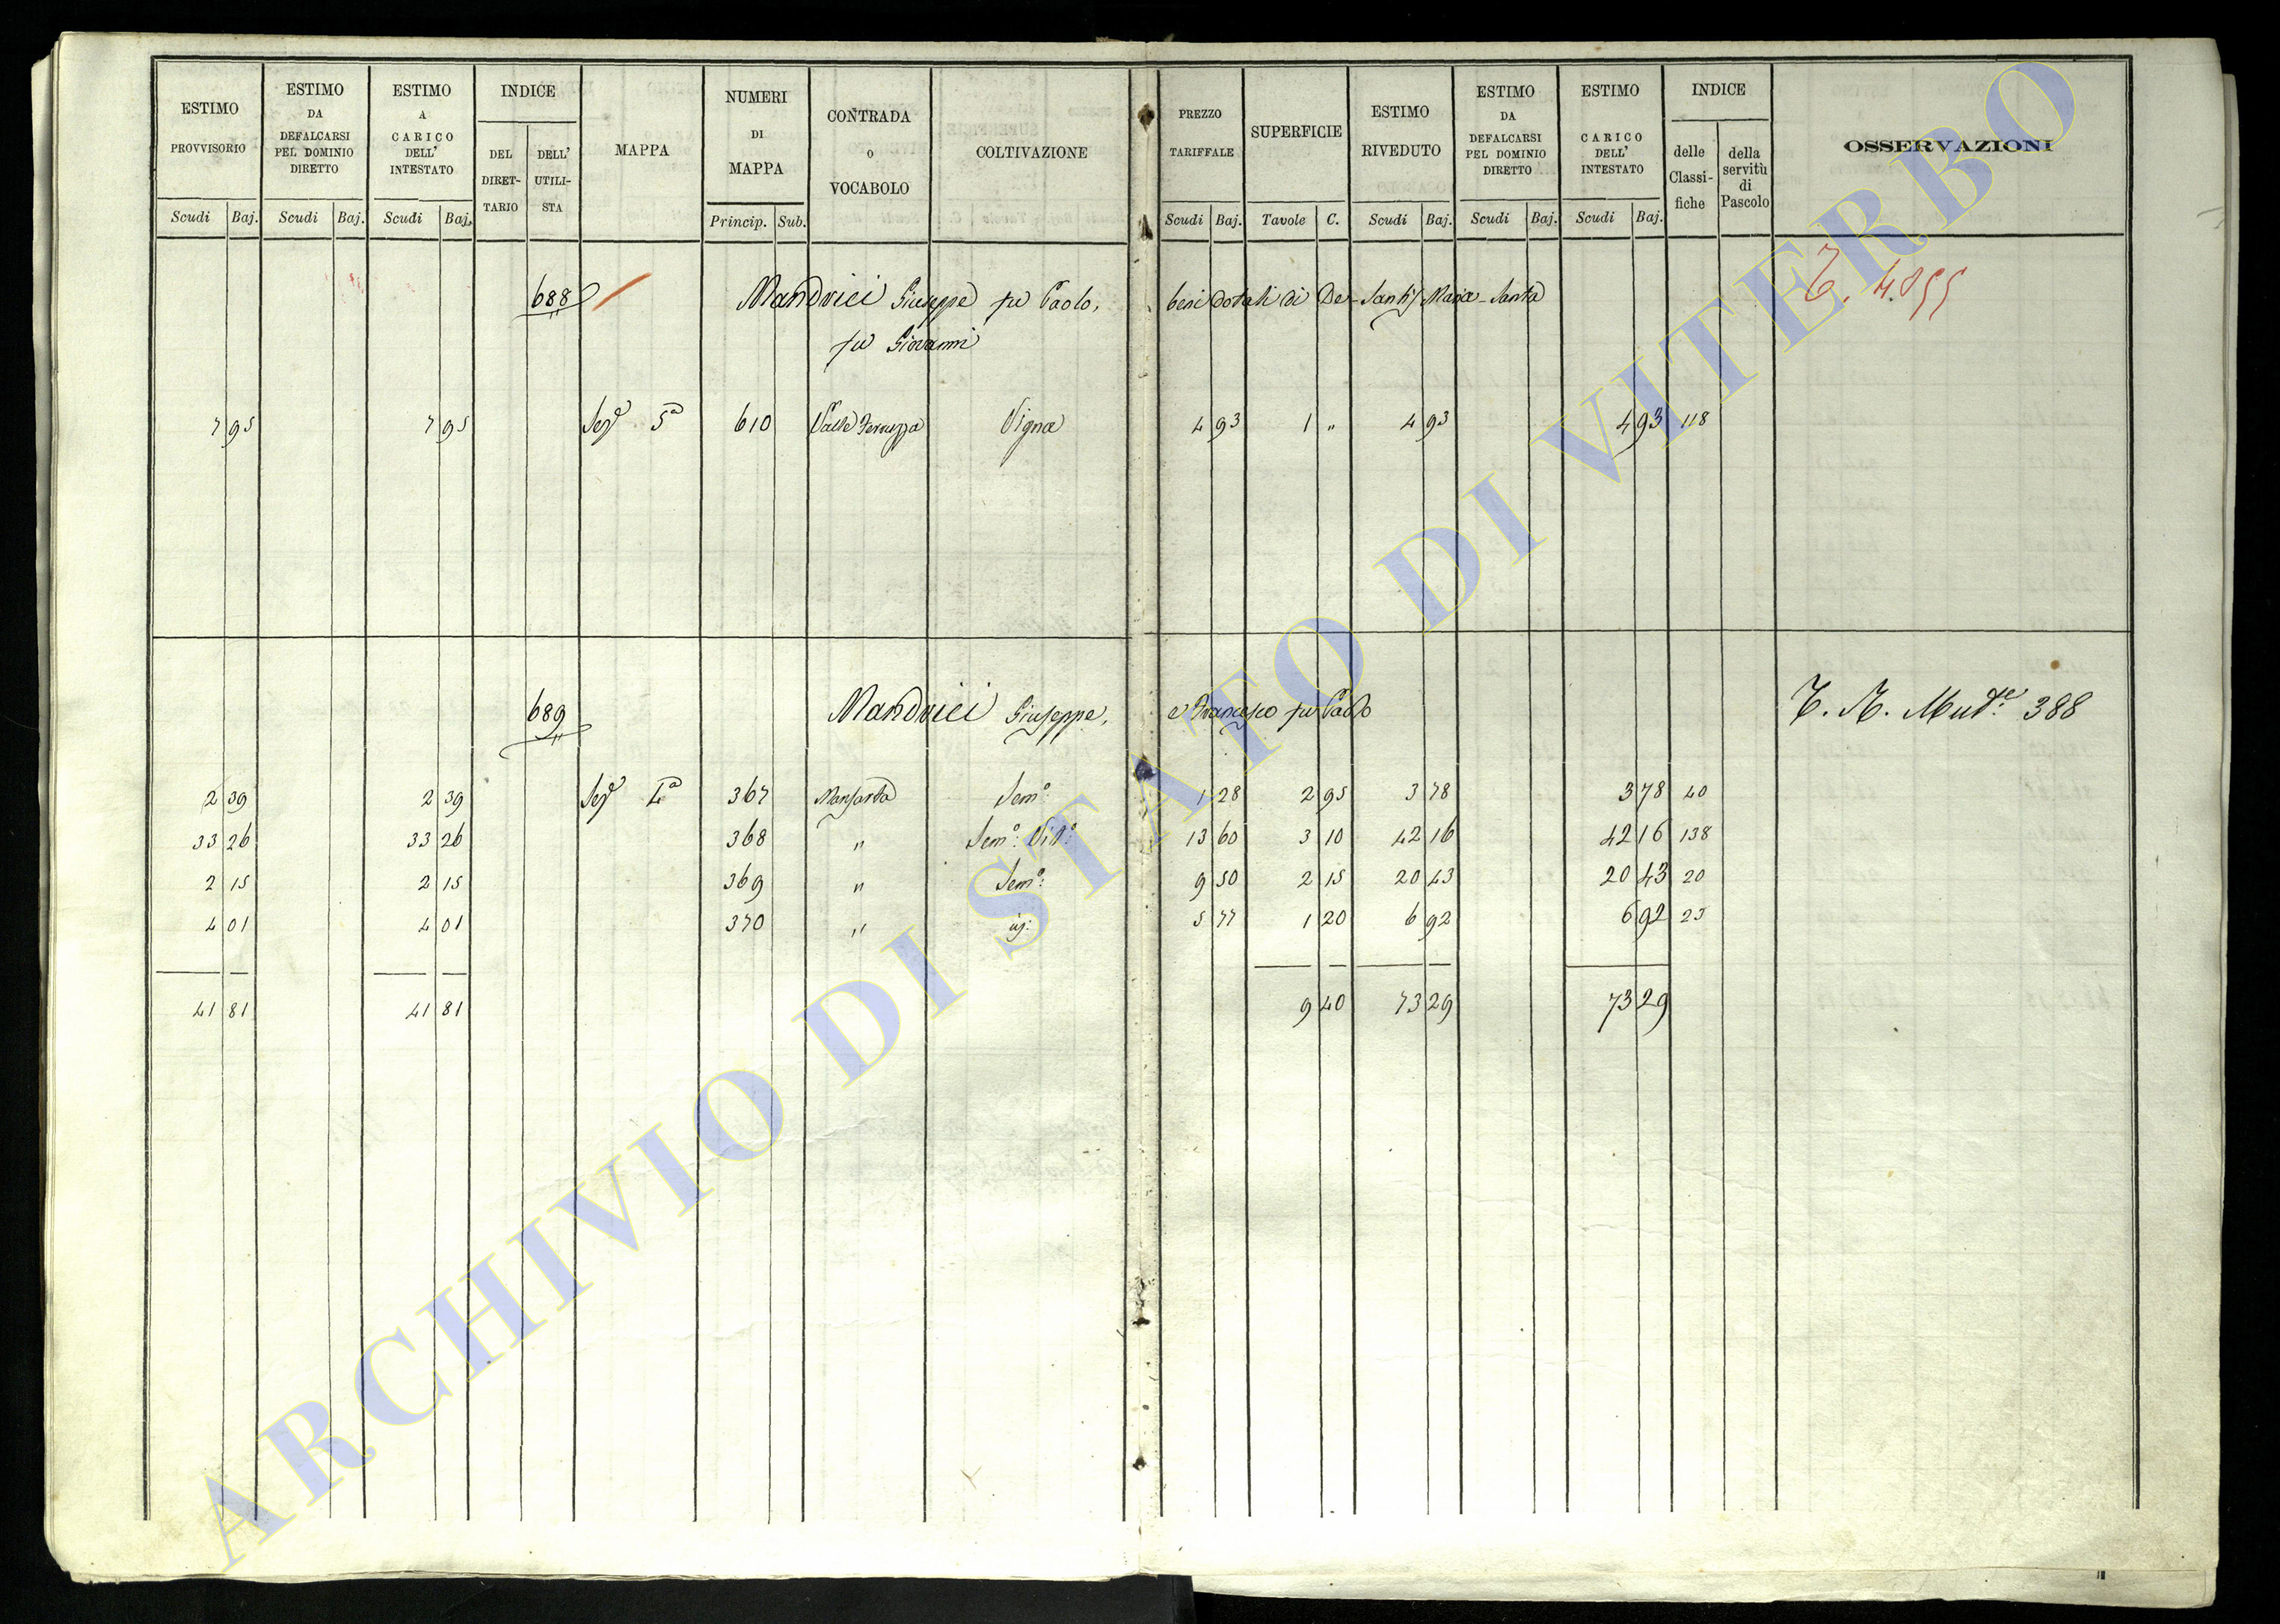 ESTIMO PROVVISORIO | ESTIMO DA DEFALCARSI PEL DOMINIO DIRETTO | ESTIMO A CARICO DELL' INTESTATO | INDICE DEL DIRET-TARIO | DELL' UTILI-STA | MAPPA | NUMERI DI MAPPA | CONTRADA O VOCABOLO | COLTIVAZIONE | PREZZO TARIFFALE | SUPERFICIE | ESTIMO RIVEDUTO | ESTIMO DA DEFALCARSI PEL DOMINIO DIRETTO | ESTIMO CARICO DELL' INTESTATO | INDICE delle Classi-fiche | della servitù di Pascolo | OSSERVAZIONI
Scudi Baj. | Scudi Baj. | Scudi Baj. | Princip. Sub. | Scudi Baj. | Tavole C. | Scudi Baj. | Scudi Baj. | Scudi Baj.
688 Mandrici Giuseppe fu Paolo, beni dotali di De-Santis Maria-Santa
fu Giovanni
7 95 | 7 95 | Sez. 5a | 610 | Valle | Vigna | 4 93 | 1 " | 4 93 | 4 93 | 118
689 Mandrici Giuseppe, e Francesco fu Paolo T. N. 388
2 39 | 2 39 | 367 | Sem.o | 1 28 | 2 95 | 3 78 | 3 78 | 40
33 26 | 33 26 | 368 | " | Sem.o: Vit.o: | 13 60 | 3 10 | 42 16 | 42 16 | 138
2 15 | 2 15 | 369 | " | Sem.o: | 9 50 | 2 15 | 20 43 | 20 43 | 20
4 01 | 4 01 | 370 | " | 5 77 | 1 20 | 6 92 | 6 92 | 25
41 81 | 41 81 | 9 40 | 73 29 | 73 29
ARCHIVIO DI STATO DI VITERBO